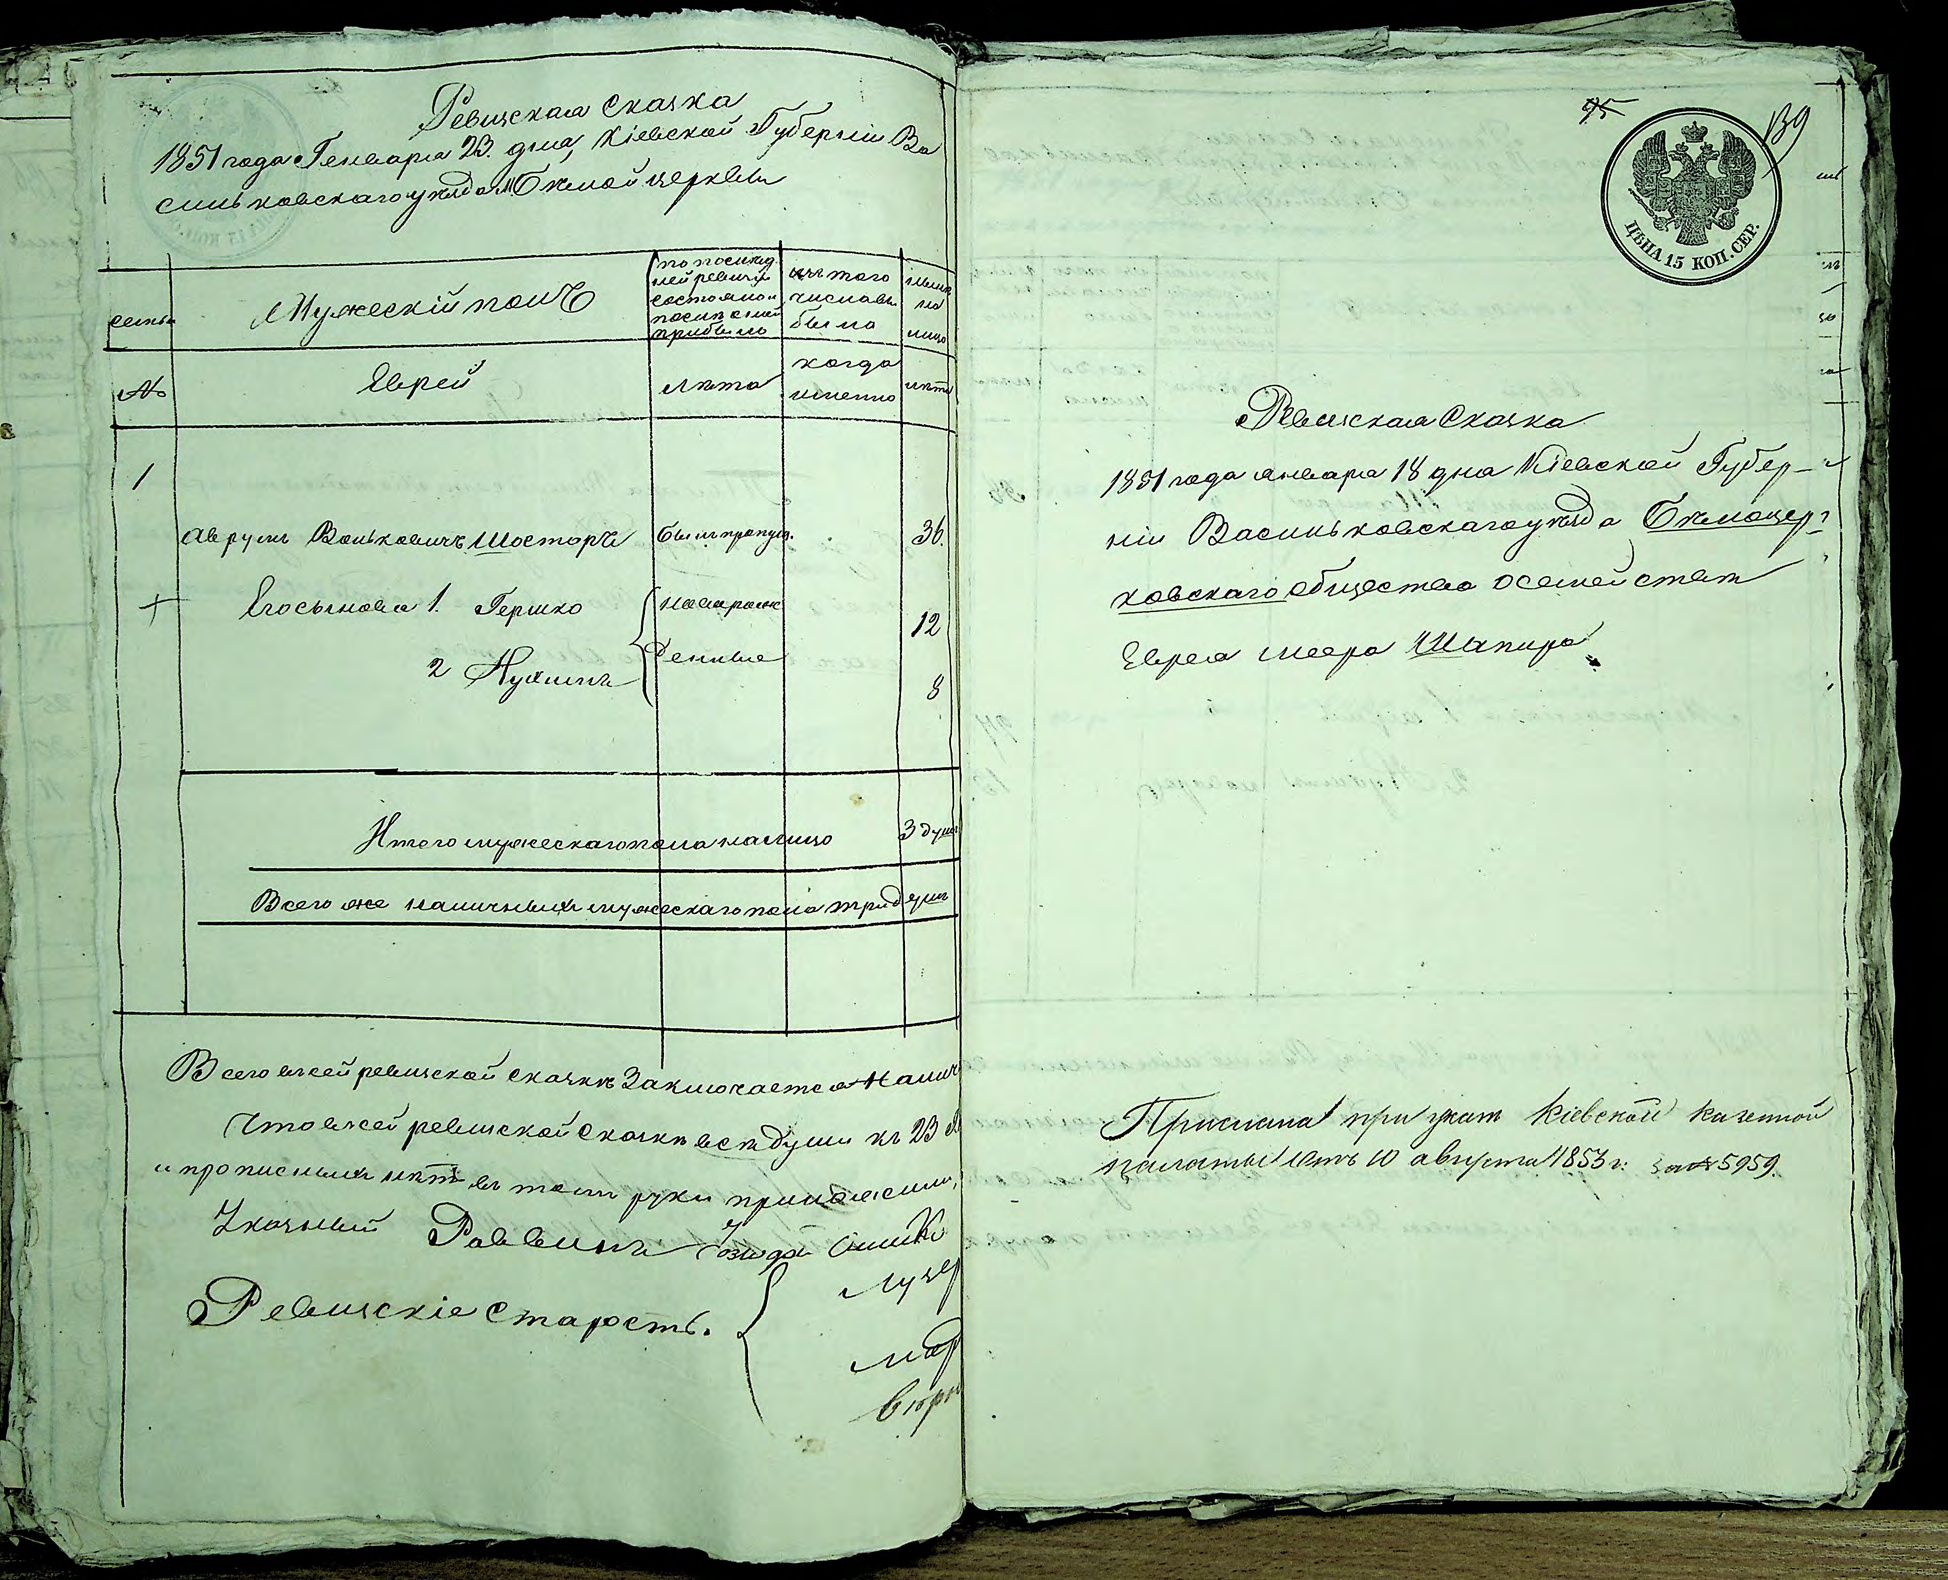 Ревизская Сказка
1851 года Генваря 23. дня, Кіевской Губерніи Ва
сильковскаго уѣзда м Бѣлой церкви
семьи
Мужескій полъ
по послѣд
ней ревизіи
состояло и
послѣ оной
прибыло
изъ того
числа вы
было
нынѣ
на
лицо
№
Еврей
лѣта
когда
именно
лѣта
1
Аврумъ Волькович Шосторъ
былъ пропущ.
36.
Его сыновья 1. Гершко
новорож
12
2 Нухимъ
денные
8
Итого мужескаго пола налицо
3 души
Всего же наличныхъ мужескаго пола три души
Всего в сей ревизской сказкѣ Заключается налич
Что в сей ревизской сказкѣ всѣ души къ 23
и прописныхъ нѣтъ въ томъ руки приложили,
Указный Раввинъ
Ревизскіе Старосты.
95
139
ЦѢНА 15 КОП. СЕР.
Ревизская Сказка
1851 года января 18 дня Кіевской Губер-
ніи Васильковскаго уѣзда Бѣлоцер-
ковскаго общества о семействѣ
Еврея Меера Шапиро
Прислана при указѣ Кіевской Казенной
палаты отъ 10 августа 1853 г: за № 5959.